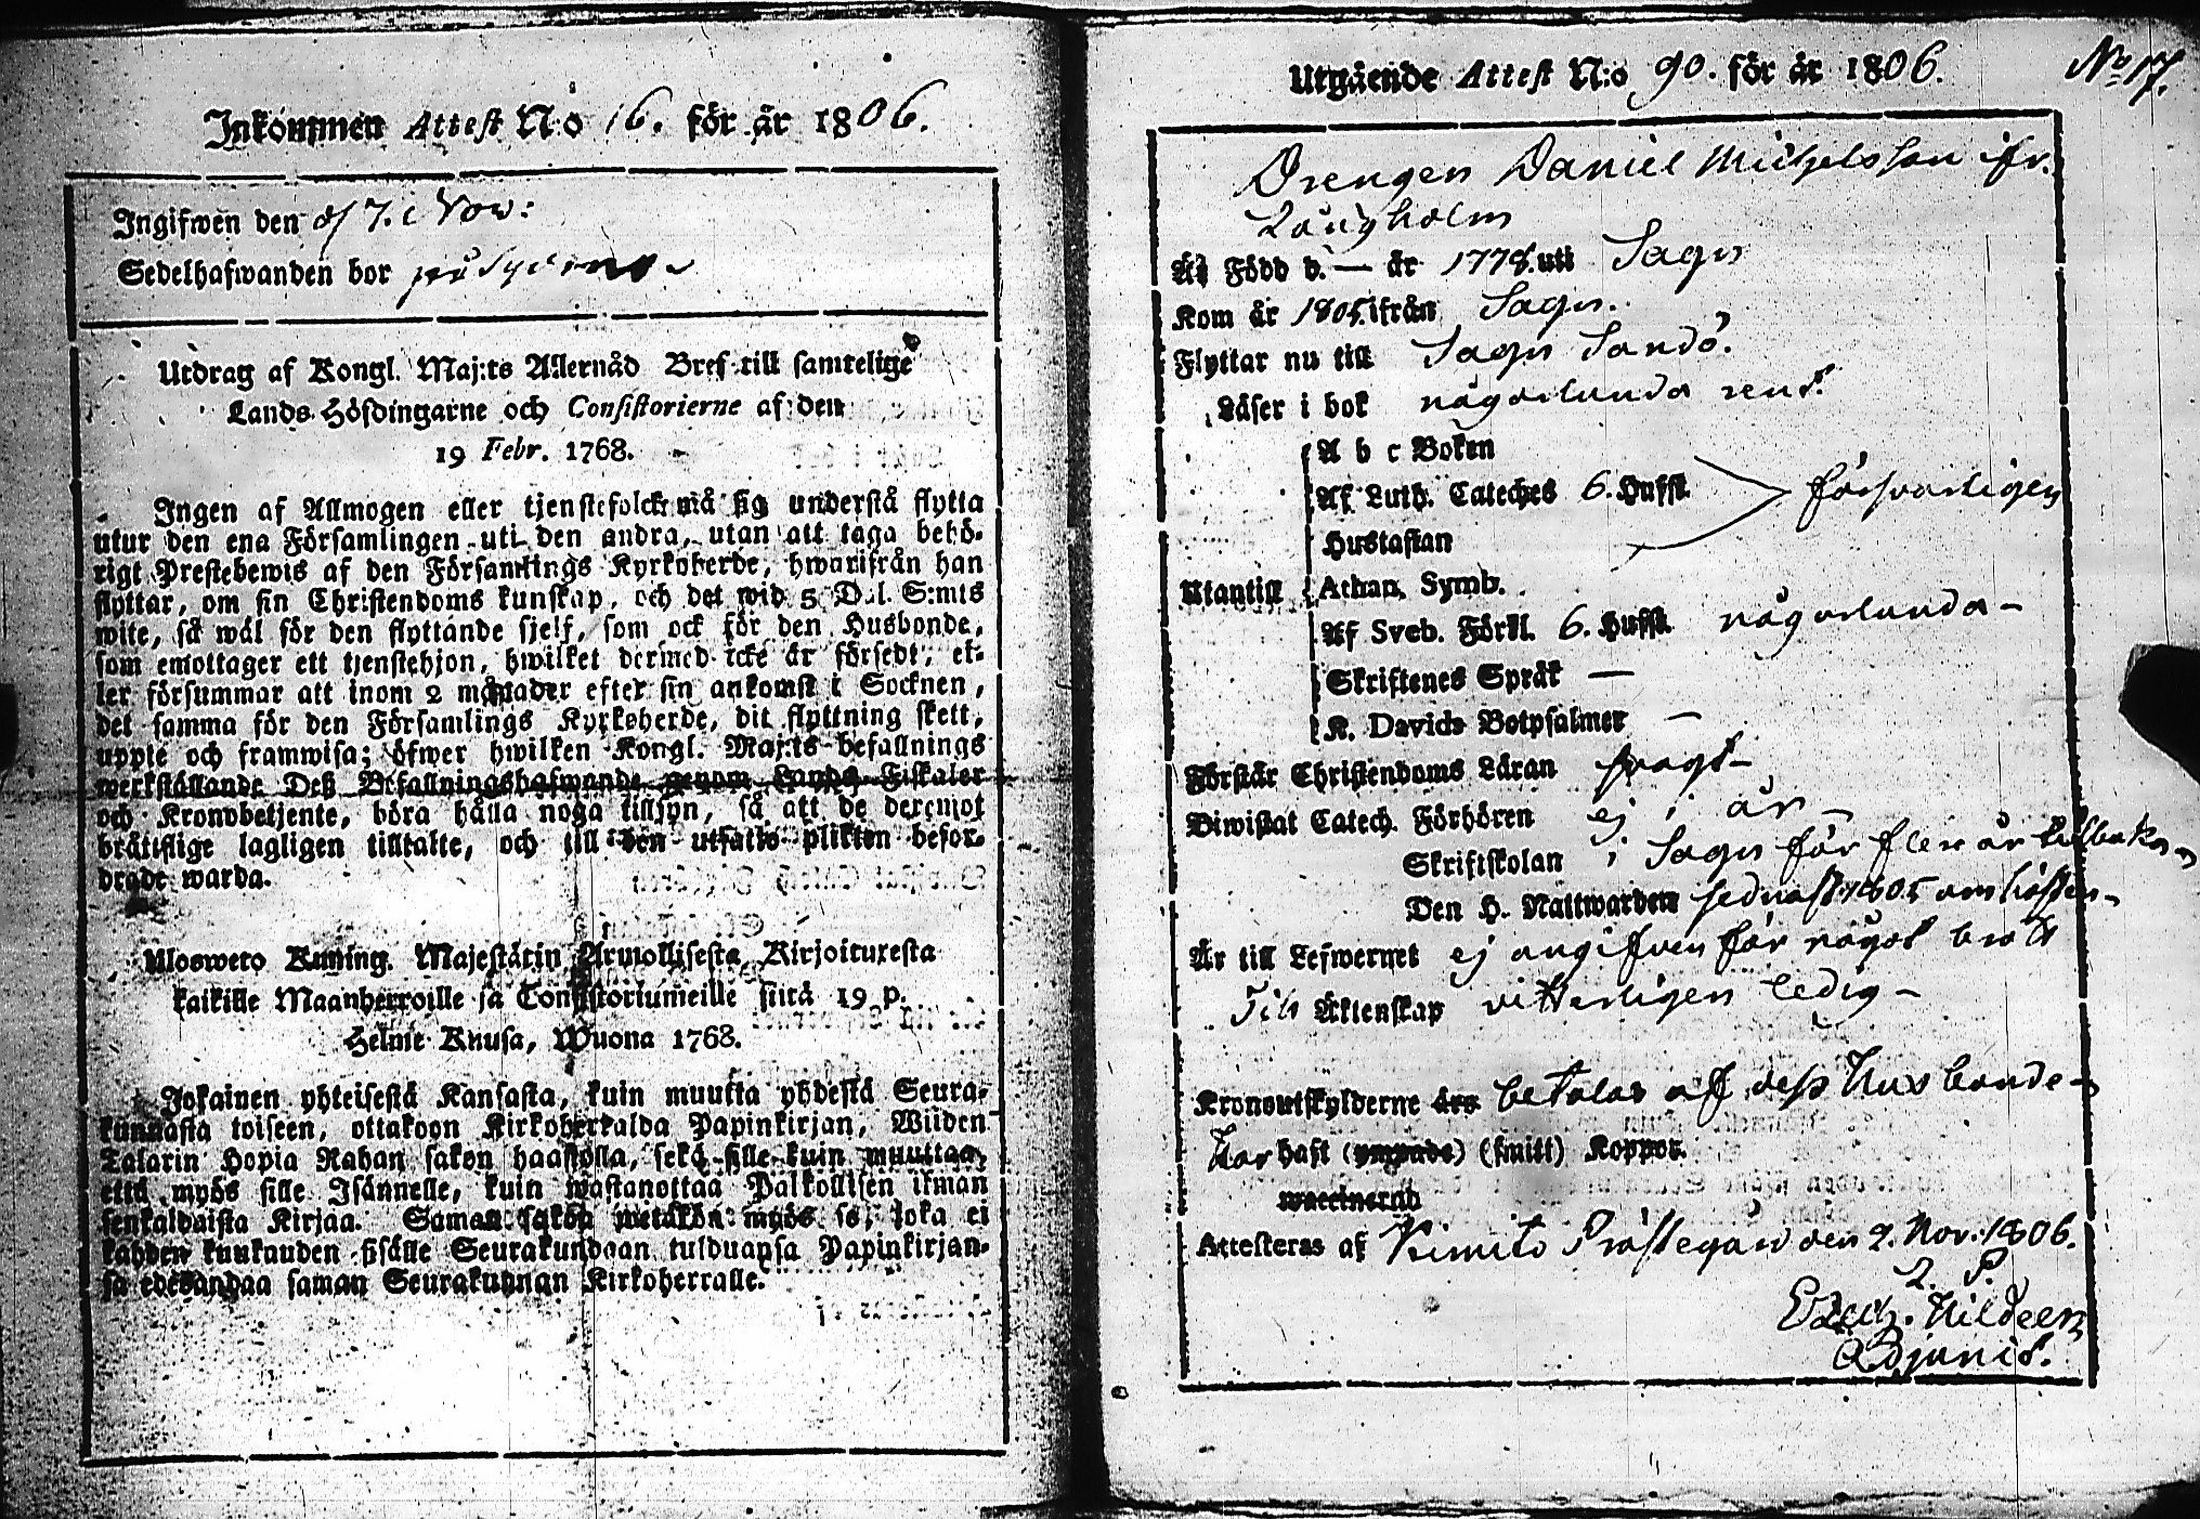 Inkommen Attest N:o 16. för år 1806.
Ingifwen den 7. Nov:
Sedelhafwanden bor på
Utdrag af Kongl. Maj:ts Allernåd Bref till samtelige
Lands-Höfdingarne och Consistorierne af den
19 Febr. 1768.
Ingen af Allmogen eller tjenstefolck må sig understå flytta
utur den ena Församlingen uti den andra, utan att taga behö-
rigt Prestebewis af den Församlings Kyrkoherde, hwarifrån han
flyttar, om sin Christendoms kunskap, och det wid 5 Dal. S:mts
wite, så wäl för den flyttande sjelf, som ock för den Husbonde,
som emottager ett tjenstehjon, hwilket dermed icke är försedt, el-
ler försummar att inom 2 månader efter sin ankomst i Socknen,
det samma för den Församlings Kyrkoherde, dit flyttning skett,
uppte och framwisa; öfwer hwilken Kongl. Maj:ts befallnings
werkställande Deß Befallningshafwande genom Lands-Fiskaler
och Kronobetjente, böra hålla noga tillsyn, så att de deremot
bråttslige lagligen tilltalte, och till den utsatte plikten befor-
drade warda.
Ulosweto Kuning. Majestätin Armollisesta Kirjoituxesta
kaikille Maanherroille ja Consistoriumeille siitä 19 p.
Helme Kuusa, Wuona 1768.
Jokainen yhteisestä Kansasta, kuin muutta yhdestä Seura-
kunnasta toiseen, ottakoon Kirkoherralda Papinkirjan, Wiiden
Talarin Hopia Rahan sakon haastolla, sekä sille kuin muuttaa,
että myös sille Isännelle, kuin wastanottaa Palkollisen ilman
senkaldaista Kirjaa. Saman sakon wetäkön myös se, joka ei
kahden kuukauden sisälle Seurakundaan tulduansa Papinkirjan-
sa edesandaa saman Seurakunnan Kirkoherralle.
Utgående Attest N:o 90. för år 1806.
No 17.
Drengen Daniel Michelsson ifr.
Långholm
Är Född d. — år 1778. uti Sagu
Kom år 1805. ifrån Sagu.
Flyttar nu till Sagu Sandö.
Läser i bok någorlunda rent.
A b c Boken
Af Luth. Cateches 6. Hufst. försvarligen
Hustaflan
Utantill Athan. Symb.
Af Sveb. Förkl. 6. Hufst. någorlunda —
Skriftenes Språk —
K. Davids Botpsalmer —
Förstår Christendoms Läran svagt —
Biwistat Catech. Förhören ej i år —
Skriftskolan i Sagu för flere år tilbaka —
Den H. Nattwarden sednast 1805 om hösten —
Är till Lefwernet ej angifven för något brott
Till Äktenskap vitterligen ledig —
Kronoutskylderne äro betalas af deß Husbonde —
Har haft (ympade) (smitt) Koppor.
waccinerad
Attesteras af Kimito Prästegård den 2. Nov. 1806.
L. P.
Hildeen
Adjunct.